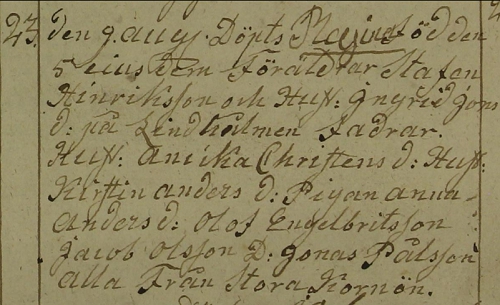 23. den 9. aug. Döpts Regina född den
5 eiusdem Föräldrar Stafan
Hinriksson och Hust: Ingrid Jons
d: på Lindholmen fadrar.
Hust: Anika Christens d: Hust:
Kirstin anders d: Pigan anna
anders d: Olof Engelbritsson
Jacob Olsson D: Jonas Pålsson
alla Från Stora Kornön.